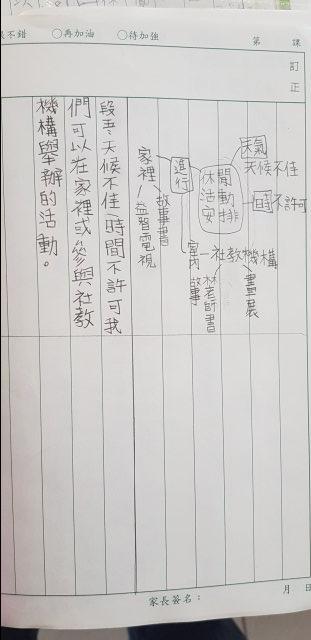 很不錯 ○再加油 ○待加強
第 課
訂正
天氣
天候不佳
休閒
活動
安排
時 不許可
進行
家裡
故事書
益智電視
室內
社教機構
書展
林老師說
故事
段吾:天候不佳、時間不許可我
們可以在家裡或參與社教
機構舉辦的活動。
家長簽名:
月 日